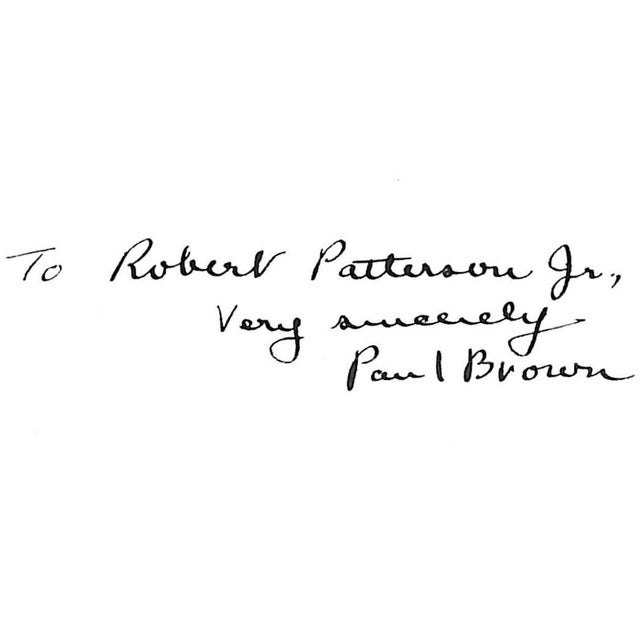 To Robert Patterson Jr.,
Very sincerely
Paul Brown